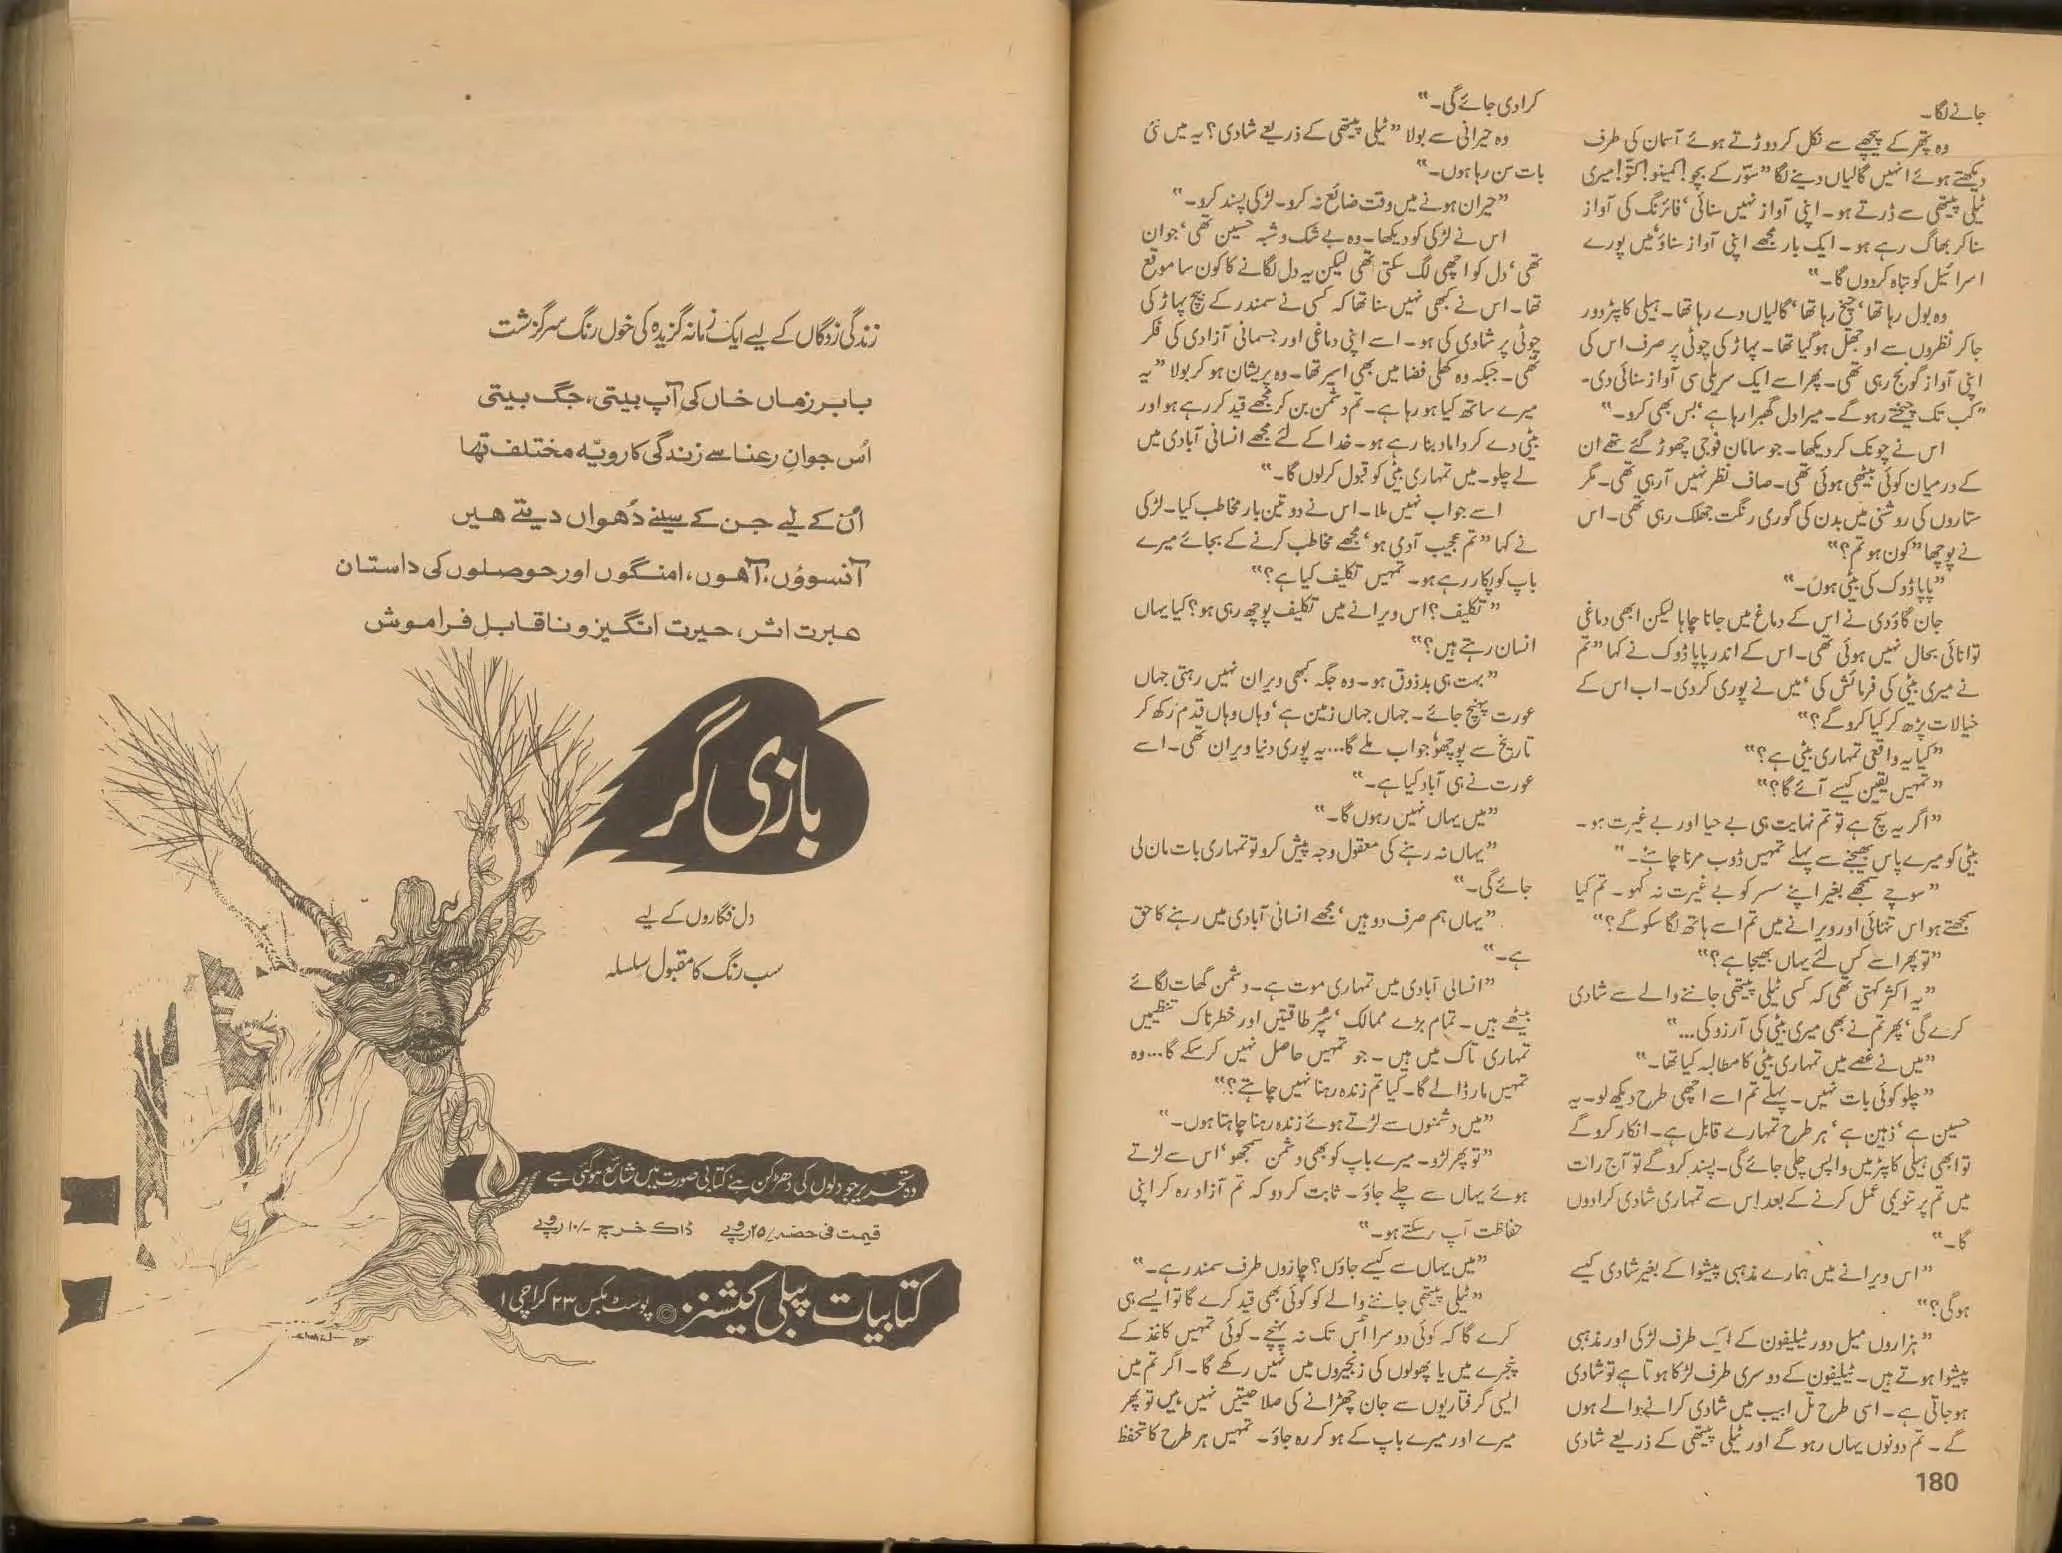 جانے لگا۔
وہ پتھر کے پیچھے سے نکل کر دوڑتے ہوئے آسمان کی طرف
دیکھتے ہوئے انہیں گالیاں دینے لگا "سؤر کے بچو! کمینو! کتّو! میری
ٹیلی پیتھی سے ڈرتے ہو۔ اپنی آواز نہیں سنائی' فائرنگ کی آواز
سنا کر بھاگ رہے ہو۔ ایک بار مجھے اپنی آواز سناؤ' میں پورے
اسرائیل کو تباہ کر دوں گا۔"
وہ بول رہا تھا' چیخ رہا تھا' گالیاں دے رہا تھا۔ ہیلی کاپٹر دور
جا کر نظروں سے اوجھل ہو گیا تھا۔ پہاڑ کی چوٹی پر صرف اس کی
اپنی آواز گونج رہی تھی۔ پھر اسے ایک سریلی سی آواز سنائی دی۔
"کب تک چیختے رہو گے۔ میرا دل گھبرا رہا ہے' بس بھی کرو۔"
اس نے چونک کر دیکھا۔ جو سامان فوجی چھوڑ گئے تھے ان
کے درمیان کوئی بیٹھی ہوئی تھی۔ صاف نظر نہیں آ رہی تھی۔ مگر
ستاروں کی روشنی میں بدن کی گوری رنگت جھلک رہی تھی۔ اس
نے پوچھا "کون ہو تم؟"
"پاپا ڈوک کی بیٹی ہوں۔"
جان گاؤدی نے اس کے دماغ میں جانا چاہا لیکن ابھی دماغی
توانائی بحال نہیں ہوئی تھی۔ اس کے اندر پاپا ڈوک نے کہا "تم
نے میری بیٹی کی فرمائش کی' میں نے پوری کر دی۔ اب اس کے
خیالات پڑھ کر کیا کرو گے؟"
"کیا یہ واقعی تمہاری بیٹی ہے؟"
"تمہیں یقین کیسے آئے گا؟"
"اگر یہ سچ ہے تو تم نہایت ہی بے حیا اور بے غیرت ہو۔
بیٹی کو میرے پاس بھیجنے سے پہلے تمہیں ڈوب مرنا چاہئے۔"
"سوچے سمجھے بغیر اپنے سسر کو بے غیرت نہ کہو۔ تم کیا
سمجھتے ہو اس تنہائی اور ویرانے میں تم اسے ہاتھ لگا سکو گے؟"
"تو پھر اسے کس لئے یہاں بھیجا ہے؟"
"یہ اکثر کہتی تھی کہ کسی ٹیلی پیتھی جاننے والے سے شادی
کرے گی' پھر تم نے بھی میری بیٹی کی آرزو کی..."
"میں نے غصے میں تمہاری بیٹی کا مطالبہ کیا تھا۔"
"چلو کوئی بات نہیں۔ پہلے تم اسے اچھی طرح دیکھ لو۔ یہ
حسین ہے' ذہین ہے' ہر طرح تمہارے قابل ہے۔ انکار کرو گے
تو ابھی ہیلی کاپٹر میں واپس چلی جائے گی۔ پسند کرو گے تو آج رات
میں تم پر تنویمی عمل کرنے کے بعد اس سے تمہاری شادی کرا دوں
گا۔"
"اس ویرانے میں ہمارے مذہبی پیشوا کے بغیر شادی کیسے
ہو گی؟"
"ہزاروں میل دور ٹیلیفون کے ایک طرف لڑکی اور مذہبی
پیشوا ہوتے ہیں۔ ٹیلیفون کے دوسری طرف لڑکا ہوتا ہے تو شادی
ہو جاتی ہے۔ اسی طرح تل ابیب میں شادی کرانے والے ہوں
گے۔ تم دونوں یہاں رہو گے اور ٹیلی پیتھی کے ذریعے شادی
کرا دی جائے گی۔"
وہ حیرانی سے بولا "ٹیلی پیتھی کے ذریعے شادی؟ یہ میں نئی
بات سن رہا ہوں۔"
"حیران ہونے میں وقت ضائع نہ کرو۔ لڑکی پسند کرو۔"
اس نے لڑکی کو دیکھا۔ وہ بے شک و شبہ حسین تھی' جوان
تھی' دل کو اچھی لگ سکتی تھی لیکن یہ دل لگانے کا کون سا موقع
تھا۔ اس نے کبھی نہیں سنا تھا کہ کسی نے سمندر کے بیچ پہاڑ کی
چوٹی پر شادی کی ہو۔ اسے اپنی دماغی اور جسمانی آزادی کی فکر
تھی۔ جبکہ وہ کھلی فضا میں بھی اسیر تھا۔ وہ پریشان ہو کر بولا "یہ
میرے ساتھ کیا ہو رہا ہے۔ تم دشمن بن کر مجھے قید کر رہے ہو اور
بیٹی دے کر داماد بنا رہے ہو۔ خدا کے لئے مجھے انسانی آبادی میں
لے چلو۔ میں تمہاری بیٹی کو قبول کر لوں گا۔"
اسے جواب نہیں ملا۔ اس نے دو تین بار مخاطب کیا۔ لڑکی
نے کہا "تم عجیب آدمی ہو' مجھے مخاطب کرنے کے بجائے میرے
باپ کو پکار رہے ہو۔ تمہیں تکلیف کیا ہے؟"
"تکلیف؟ اس ویرانے میں تکلیف پوچھ رہی ہو؟ کیا یہاں
انسان رہتے ہیں؟"
"بہت ہی بدذوق ہو۔ وہ جگہ کبھی ویران نہیں رہتی جہاں
عورت پہنچ جائے۔ جہاں جہاں زمین ہے' وہاں وہاں قدم رکھ کر
تاریخ سے پوچھو' جواب ملے گا... یہ پوری دنیا ویران تھی۔ اسے
عورت نے ہی آباد کیا ہے۔"
"میں یہاں نہیں رہوں گا۔"
"یہاں نہ رہنے کی معقول وجہ پیش کرو تو تمہاری بات مان لی
جائے گی۔"
"یہاں ہم صرف دو ہیں' مجھے انسانی آبادی میں رہنے کا حق
ہے۔"
"انسانی آبادی میں تمہاری موت ہے۔ دشمن گھات لگائے
بیٹھے ہیں۔ تمام بڑے ممالک' سپر طاقتیں اور خطرناک تنظیمیں
تمہاری تاک میں ہیں۔ جو تمہیں حاصل نہیں کر سکے گا... وہ
تمہیں مار ڈالے گا۔ کیا تم زندہ رہنا نہیں چاہتے؟"
"میں دشمنوں سے لڑتے ہوئے زندہ رہنا چاہتا ہوں۔"
"تو پھر لڑو۔ میرے باپ کو بھی دشمن سمجھو' اس سے لڑتے
ہوئے یہاں سے چلے جاؤ۔ ثابت کر دو کہ تم آزاد رہ کر اپنی
حفاظت آپ کر سکتے ہو۔"
"میں یہاں سے کیسے جاؤں؟ چاروں طرف سمندر ہے۔"
"ٹیلی پیتھی جاننے والے کو کوئی بھی قید کرے گا تو ایسے ہی
کرے گا کہ کوئی دوسرا اُس تک نہ پہنچے۔ کوئی تمہیں کاغذ کے
پنجرے میں یا پھولوں کی زنجیروں میں نہیں رکھے گا۔ اگر تم میں
ایسی گرفتاریوں سے جان چھڑانے کی صلاحیتیں نہیں ہیں تو پھر
میرے اور میرے باپ کے ہو کر رہ جاؤ۔ تمہیں ہر طرح کا تحفظ
180
زندگی زدگاں کے لیے ایک زمانہ گزیدہ کی خوں رنگ سرگزشت
بابر زماں خاں کی آپ بیتی، جگ بیتی
اُس جوانِ رعنا سے زندگی کا رویّہ مختلف تھا
اُن کے لیے جن کے سینے دُھواں دیتے ہیں
آنسوؤں، آہوں، امنگوں اور حوصلوں کی داستان
عبرت اثر، حیرت انگیز و ناقابلِ فراموش
بازی گر
دل فگاروں کے لیے
سب رنگ کا مقبول سلسلہ
وہ تحریر جو دلوں کی دھڑکن ہے کتابی صورت میں شائع ہو گئی ہے
قیمت فی حصہ /۲۵ روپے ڈاک خرچ /۱۰ روپے
کتابیات پبلی کیشنز © پوسٹ بکس ۲۳ کراچی ۱